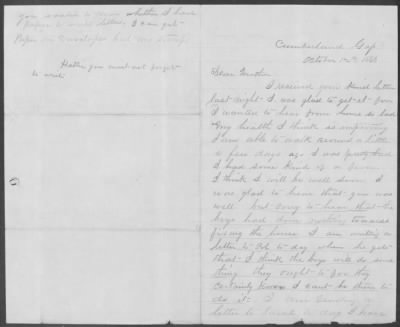 you wanted to know whether I have
paper to write letters, I can get
Paper an Envelopes but no stamps
Hattie you must not forget
to write
Cumberland Gap
October 12th 186
Dear Mother
I receive your kind letter
last night I was glad to get it for
I wanted to hear from home so bad
my health I think is improving
I am able to walk around a little
a few days ago I was pretty bad
I had some kind of a fever
I think I will be well soon I
was glad to hear that you was
well but sorry to hear that the
boys had done nothing towards
fixing the house I am writing a
letter to to day when he gets
that I think the boys will do some
thing they ought to for they
certainly know I cant be there to
do it I am sending a
letter to to day I hope